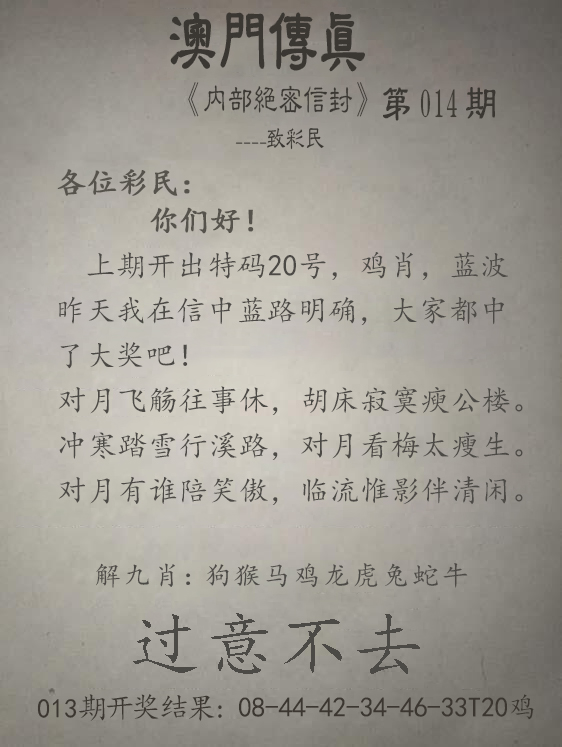 澳門傳眞
《内部絕密信封》第014期
----致彩民
各位彩民：
你们好！
上期开出特码20号，鸡肖，蓝波
昨天我在信中蓝路明确，大家都中
了大奖吧！
对月飞觞往事休，胡床寂寞瘐公楼。
冲寒踏雪行溪路，对月看梅太瘦生。
对月有谁陪笑傲，临流惟影伴清闲。
解九肖：狗猴马鸡龙虎兔蛇牛
过意不去
013期开奖结果：08-44-42-34-46-33T20鸡